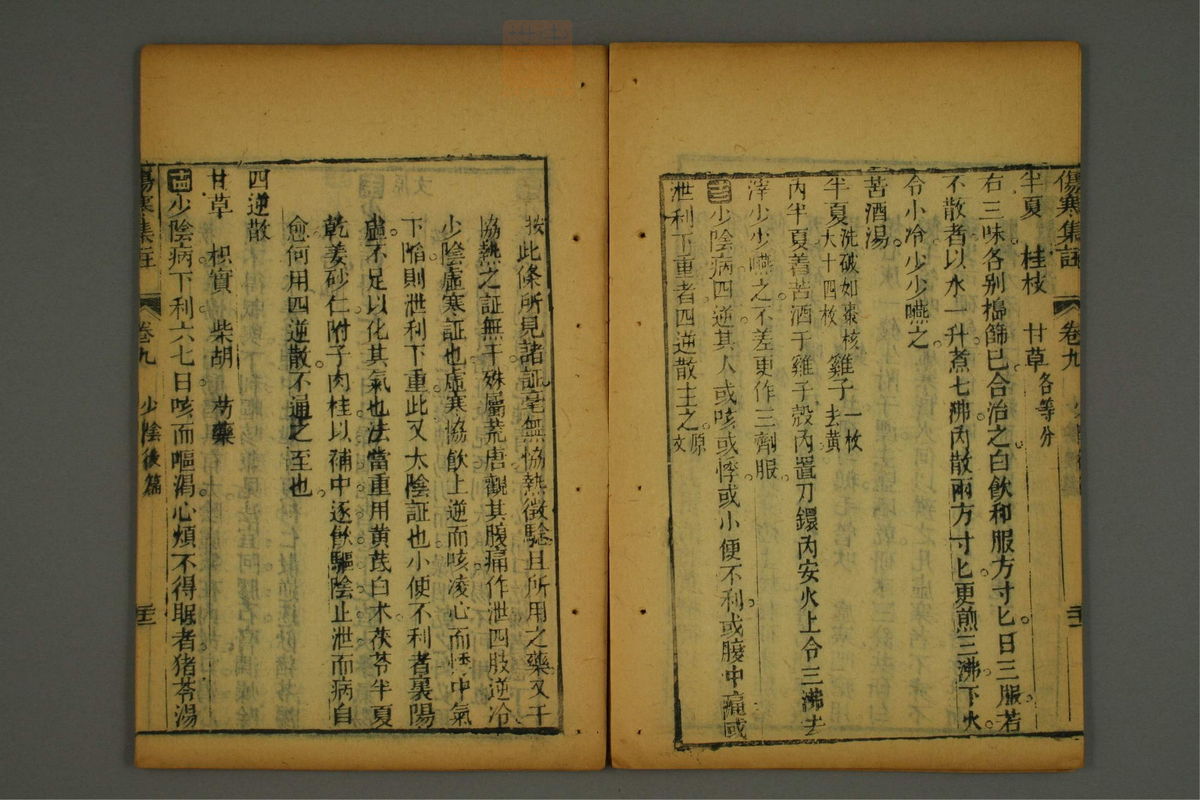 傷寒集註 卷九
半夏 桂枝 甘草各等分
右三味各别搗篩已合治之白飲和服方寸匕日三服若
不散者以水一升煮七沸內散兩方寸匕更煎三沸下火
令小冷少少嚥之
苦酒湯
半夏洗破如棗核大十四枚 雞子一枚去黃
內半夏着苦酒于雞子殼內置刀鐶內安火上令三沸去
滓少少嚥之不差更作三劑服
少陰病四逆其人或咳或悸或小便不利或腹中痛或
泄利下重者四逆散主之原文
按此條所見諸証毫無協熱徵騐且所用之藥又干
協熱之証無干殊屬荒唐觀其腹痛作泄四肢逆冷
少陰虛寒証也虛寒協飲上逆而咳凌心而悸中氣
下陷則泄利下重此又太陰証也小便不利者裏陽
虛不足以化其氣也法當重用黃芪白术茯苓半夏
乾姜砂仁附子肉桂以補中逐飲驅陰止泄而病自
愈何用四逆散不通之至也
四逆散
甘草 枳實 柴胡 芍藥
少陰病下利六七日咳而嘔渴心煩不得眠者猪苓湯
傷寒集註 卷九 少陰後篇